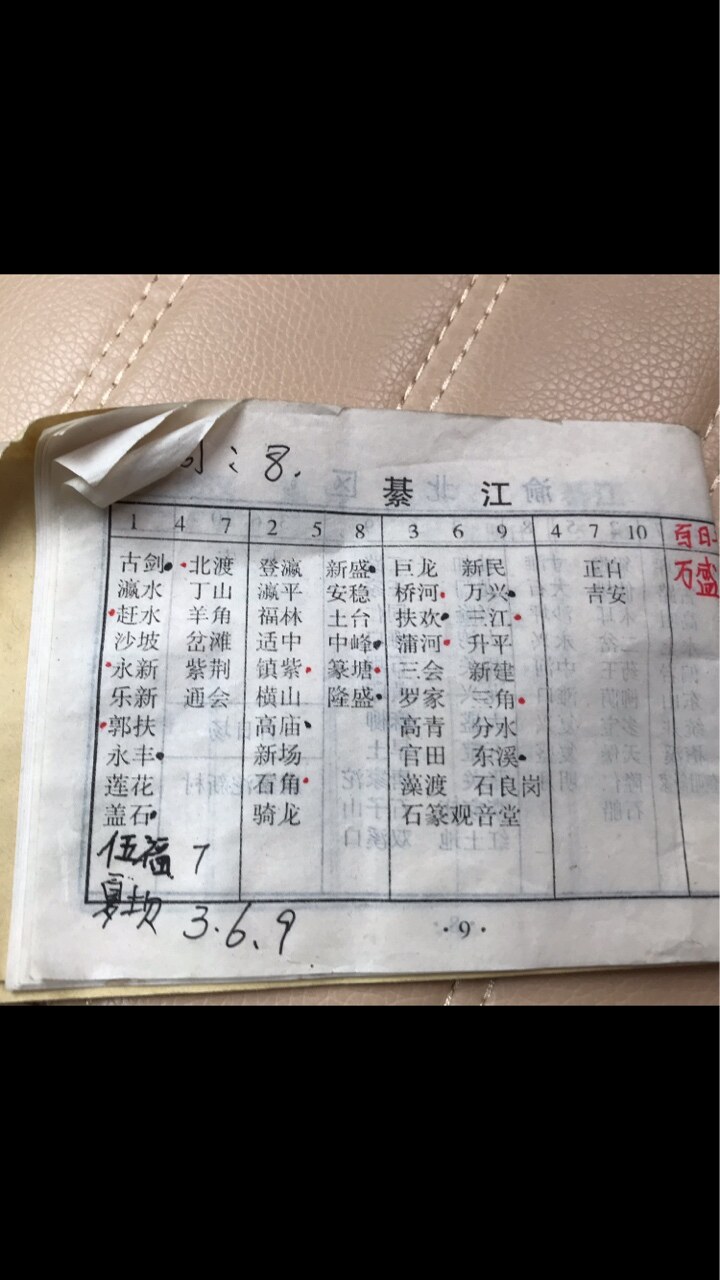 : 8.
綦 江
1 4 7 2 5 8 3 6 9 4 7 10 百日
古剑 北渡 登瀛 新盛 巨龙 新民 正自 万盛
瀛水 丁山 瀛平 安稳 桥河 万兴 吉安
赶水 羊角 福林 土台 扶欢 三江
沙坡 岔滩 适中 中峰 蒲河 升平
永新 紫荆 镇紫 篆塘 三会 新建
乐新 通会 横山 隆盛 罗家 三角
郭扶 高庙 高青 分水
永丰 新场 官田 东溪
莲花 石角 藻渡 石良岗
盖石 骑龙 石篆 观音堂
伍福 7
夏坝 3.6.9
·9·